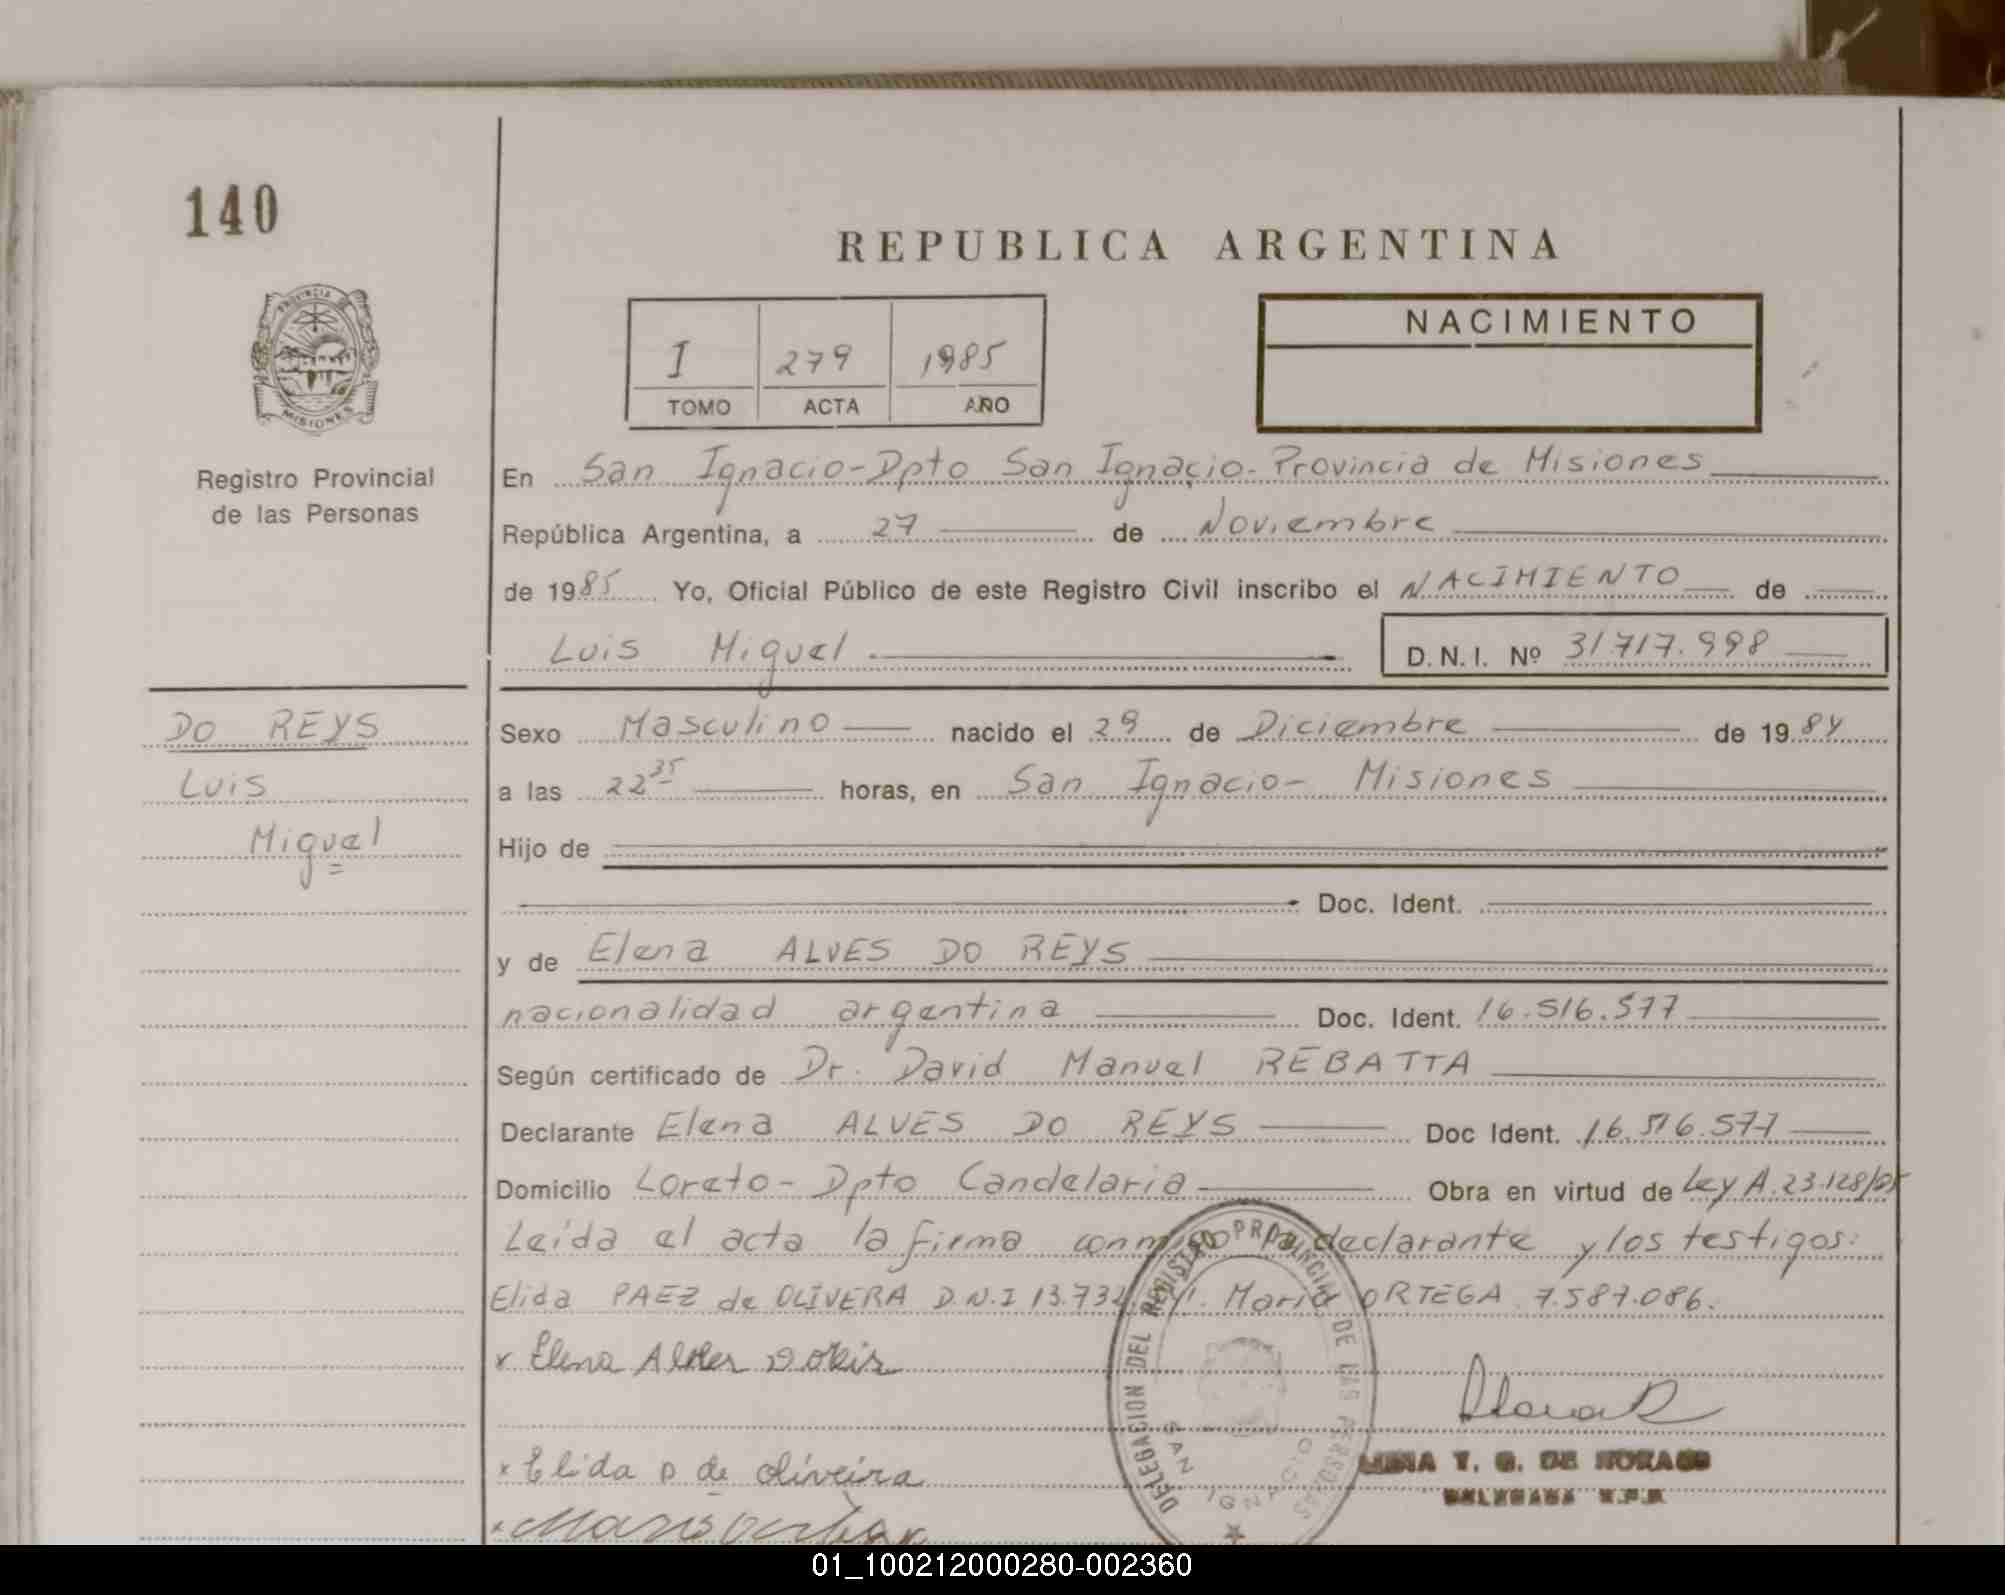 140
REPUBLICA ARGENTINA
PROVINCIA DE
MISIONES
I 279 1985
TOMO ACTA AÑO
NACIMIENTO
Registro Provincial
de las Personas
En San Ignacio-Dpto San Ignacio-Provincia de Misiones
República Argentina, a 27 de Noviembre
de 1985 Yo, Oficial Público de este Registro Civil inscribo el NACIMIENTO de
Luis Miguel D.N.I. Nº 31717.998
DO REYS
Luis
Miguel
Sexo Masculino nacido el 29 de Diciembre de 1984
a las 22 35 horas, en San Ignacio- Misiones
Hijo de
Doc. Ident.
y de Elena ALVES DO REYS
nacionalidad argentina Doc. Ident. 16.516.577
Según certificado de Dr. David Manuel REBATTA
Declarante Elena ALVES DO REYS Doc Ident. 16.516.577
Domicilio Loreto- Dpto Candelaria Obra en virtud de Ley A.23.128/85
Leída el acta la firma conmigo la declarante y los testigos:
Elida PAEZ de OLIVERA D.N.I 13.732 Mario ORTEGA 7.587.086.
x Elena
x Elida P de oliveira
DELEGACION DEL REGISTRO PROVINCIAL DE LAS PERSONAS
SAN IGNACIO
T. G. DE MORAGO
01_100212000280-002360